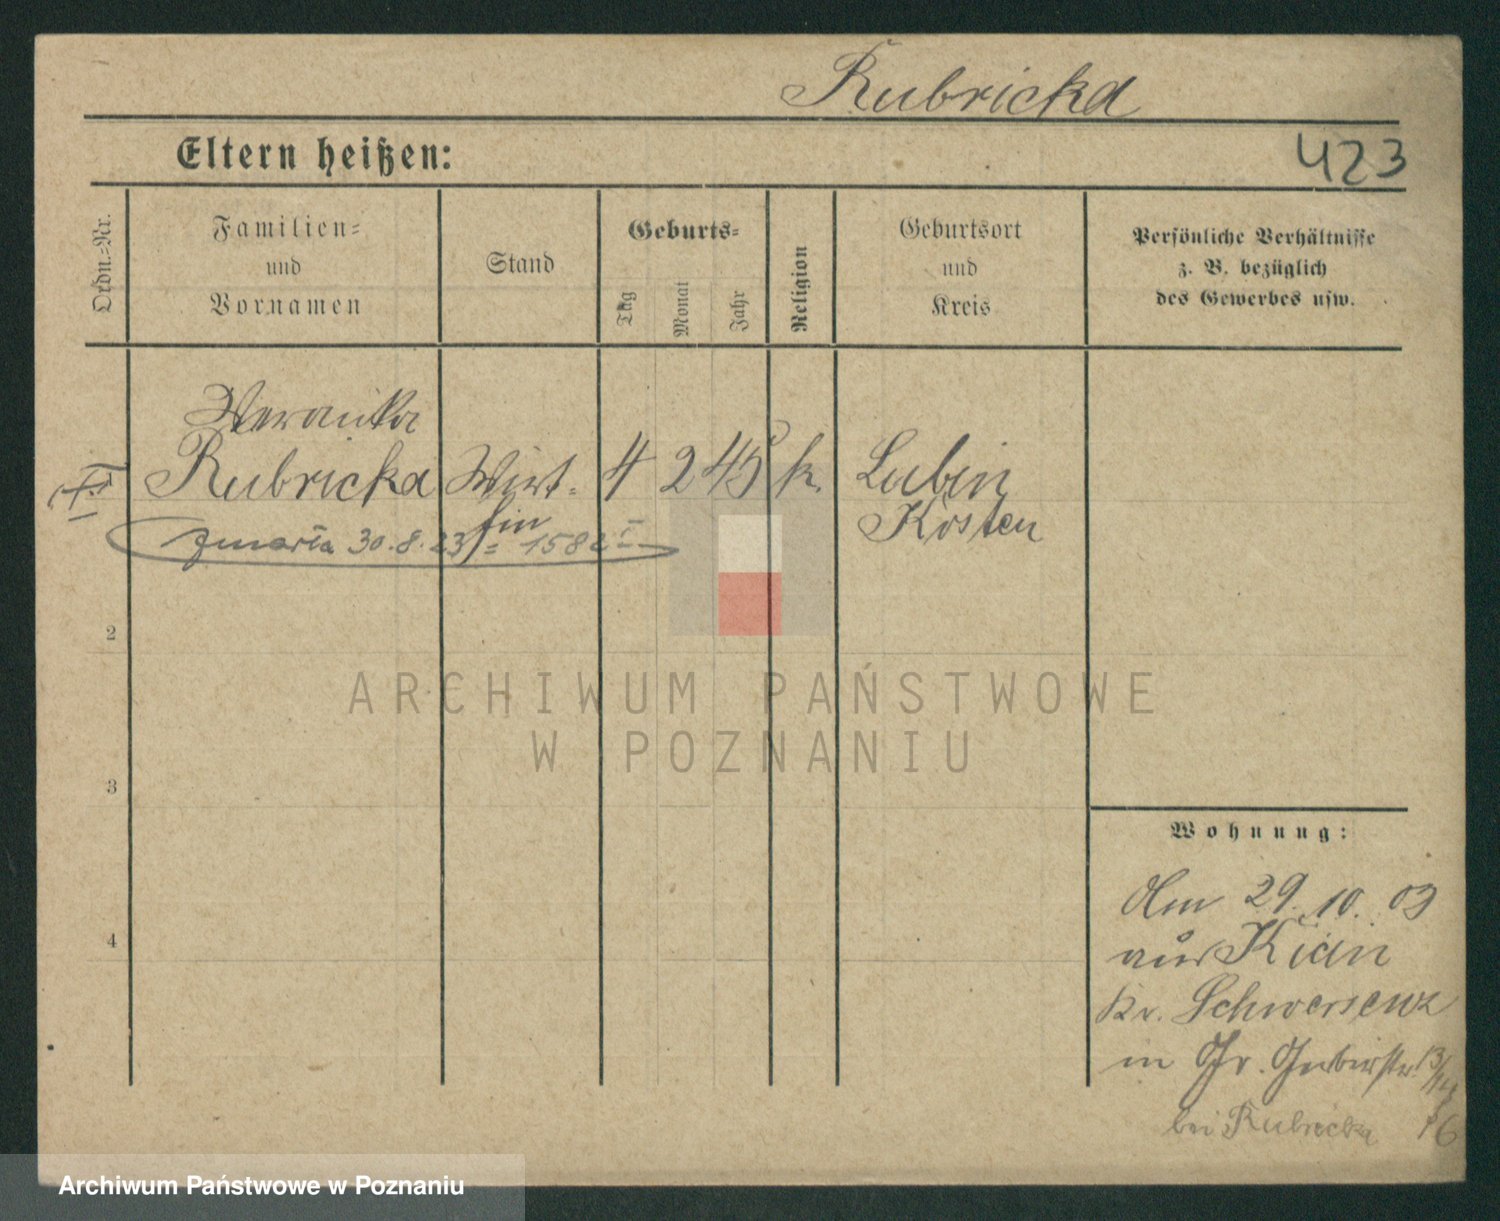 Rubricka
Eltern heißen:
423
Ordn.-Nr.
Familien-
und
Vornamen
Stand
Geburts-
Tag
Monat
Jahr
Religion
Geburtsort
und
Kreis
Persönliche Verhältnisse
z. B. bezüglich
des Gewerbes usw.
Veronika
Rubricka
Wirt-
fin
4 2 45 k.
Lubin
Kosten
zmarła 30.8.23 1582
2
3
4
Wohnung:
Am 29. 10. 03
aus Kicin
Kr. Schwersenz
in Gr. Gerberstr. 13/14
bei Rubricka
ARCHIWUM PAŃSTWOWE
W POZNANIU
Archiwum Państwowe w Poznaniu